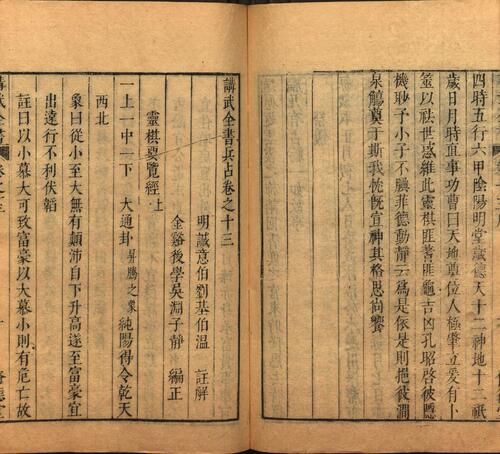 四時五行六甲陰陽明堂歲德天十二神地十二祇
歲日月時直事功曹曰天地奠位人極肇立爰有卜
筮以祛世惑維此靈棋匪蓍匪龜吉凶孔昭啓彼
機眇予小子不腆菲德動靜云為是依是則挹彼澗
泉觴奠于斯我忱既宣神其格思尚饗
講武全書兵占卷之十三
明誠意伯劉基伯溫 註解
金谿後學吳淵子靜 編正
靈棋要覽經上
一上一中一下 大通卦 昇騰之象 純陽得令乾天
西北
象曰從小至大無有顛沛自下升高遂至富豪宜
出遠行不利伏韜
註曰以小慕大可致富豪以大慕小則有危亡故
講武全書
卷之十三